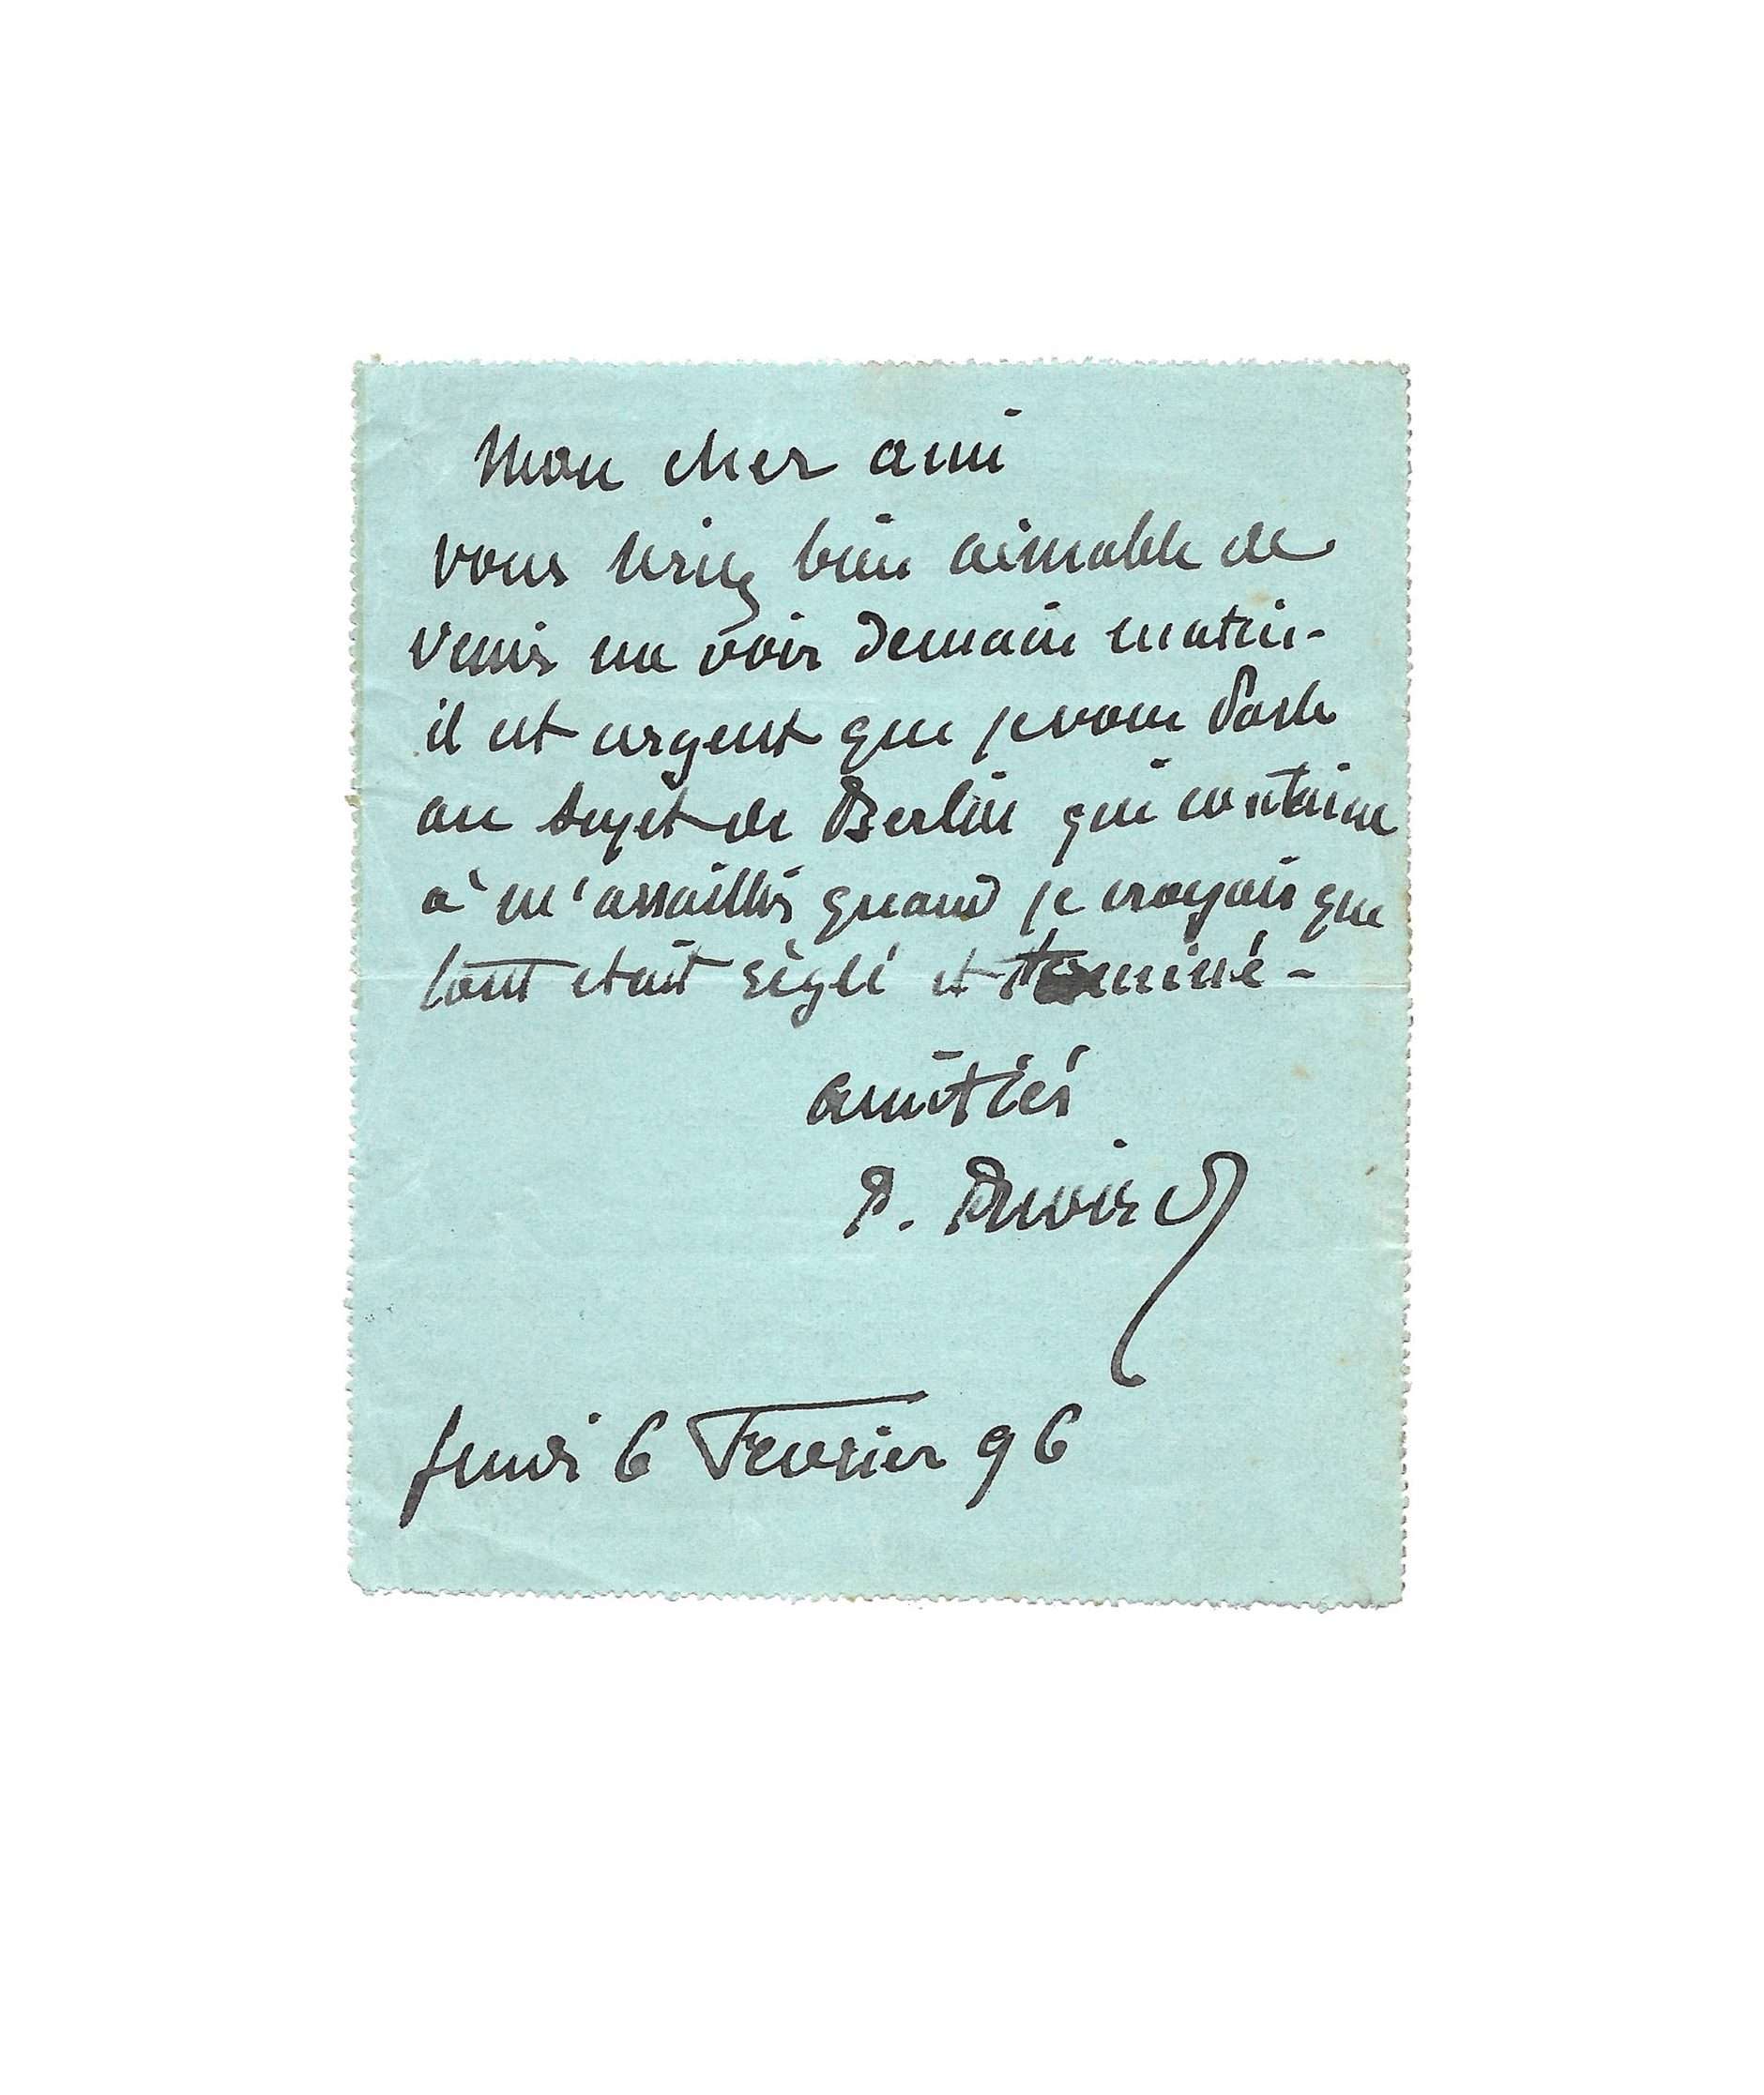 Mon cher ami
vous seriez bien aimable de
venir me voir demain matin -
il est urgent que je vous parle
au sujet de Berlin qui continue
à m'assaillir quand je croyais que
tout etait réglé et terminé -
amitiés
P. Puvis
Jeudi 6 Fevrier 96